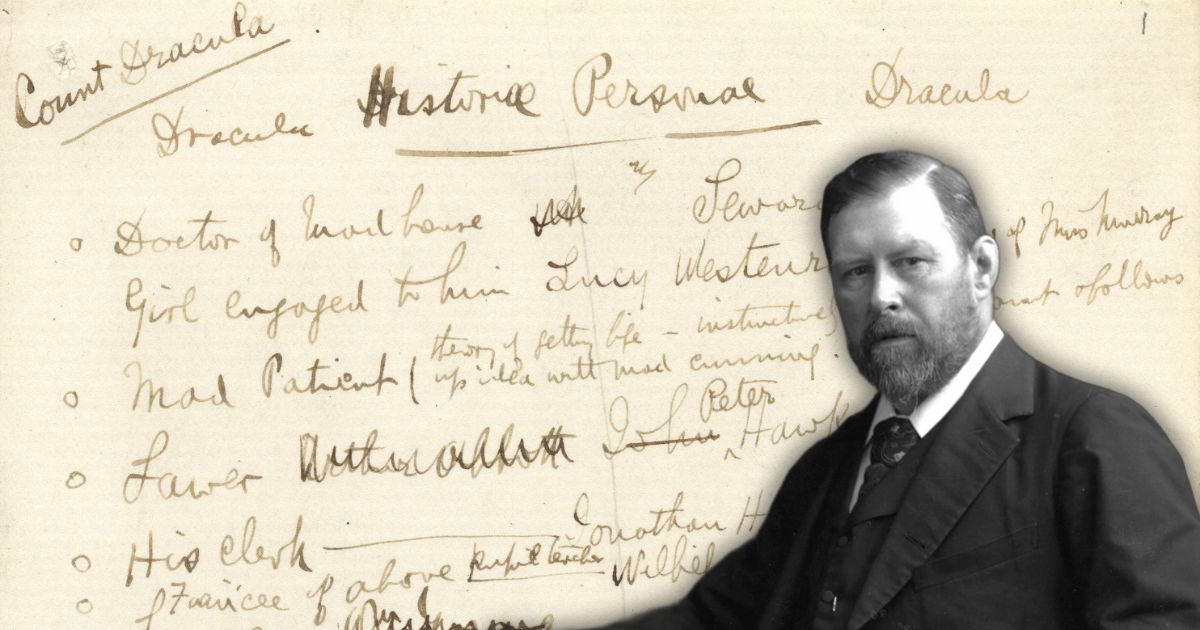 1
Count Dracula
Dracula Historiæ Personae Dracula
Doctor of Madhouse Seward
Girl engaged to him Lucy Westenr of Miss Murray
Mad Patient (theory of getting life - instinctively follows
up idea with mad cunning.
Lawer John Peter Hawk
His Clerk Jonathan H
Fiancée of above pupil teacher Wilhel